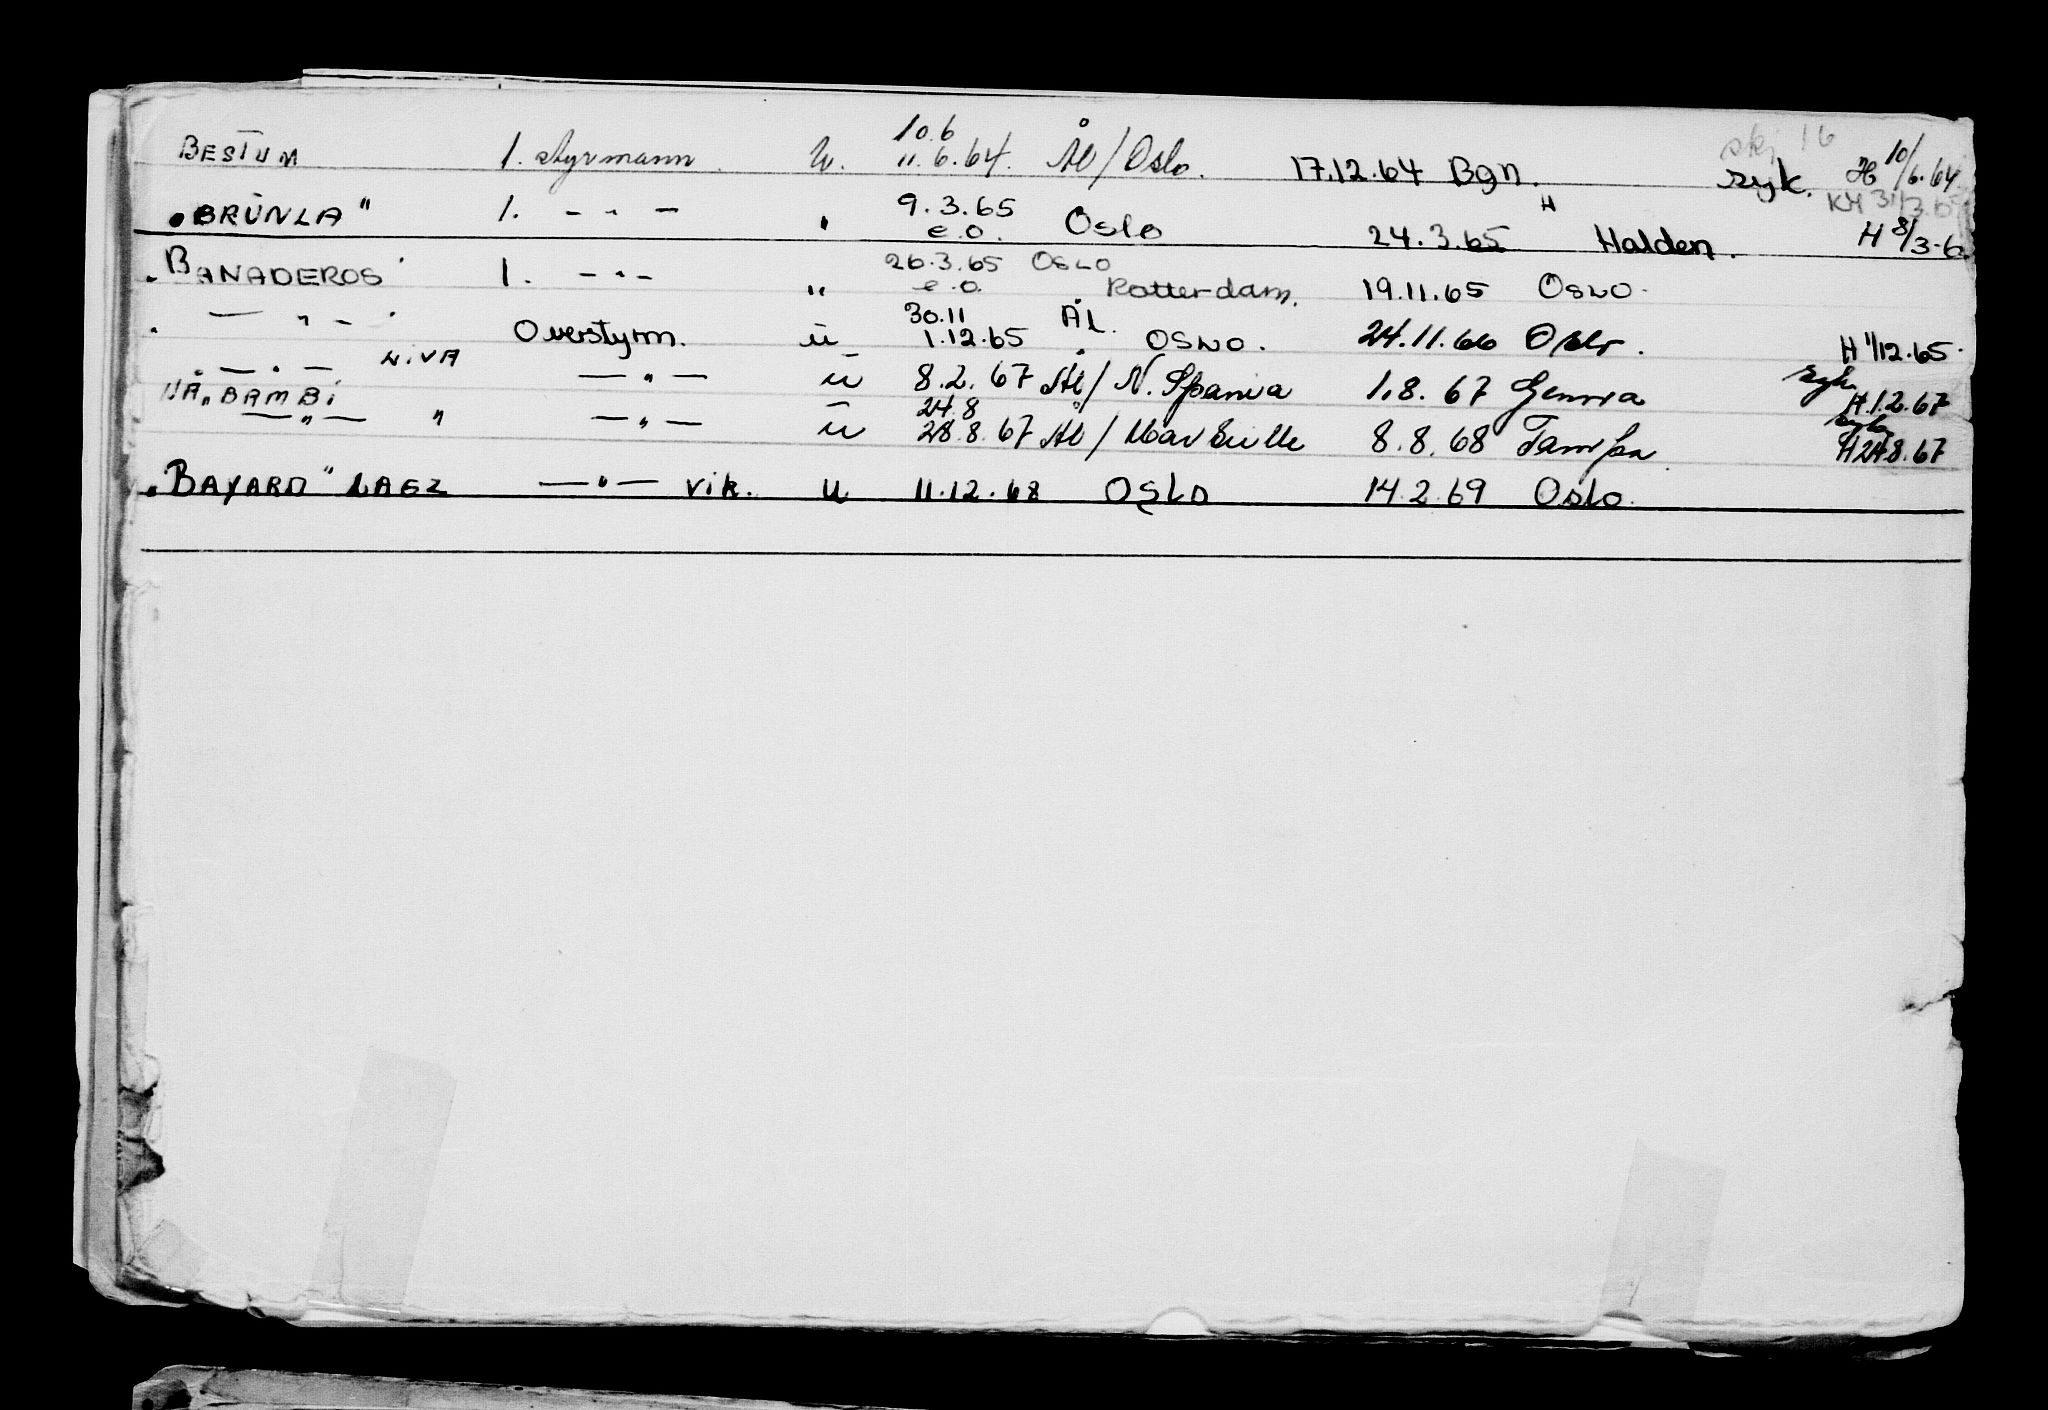 BESTUM 1. styrmann u. 10.6 11.6.64. Ål/Oslo. 17.12.64 Bgn. skj 16 syk. H 10/6.64
"BRÜNLA" 1. - " - " 9.3.65 e.o. Oslo 24.3.65 " Halden. KM 31/3.65 H 8/3-6
"BANADEROS" 1. - " - " 26.3.65 e.o. OSLO Rotterdam. 19.11.65 OSLO.
" — " — " Overstyrm. u 30.11 1.12.65 ÅL. OSLO. 24.11.66 Oslo. H 1/12.65.
" — " — NIVA — " — u 8.2.67 Ål/N. Spania 1.8.67 Genova syk H.1.2.67
NÅ "BAMBI — " — " — " — u 24.8 28.8.67 Ål/Marseille 8.8.68 Tampa syk H24.8.67
"BAYARD" LAEZ — " — vik. u 11.12.68 OSLO 14.2.69 Oslo.